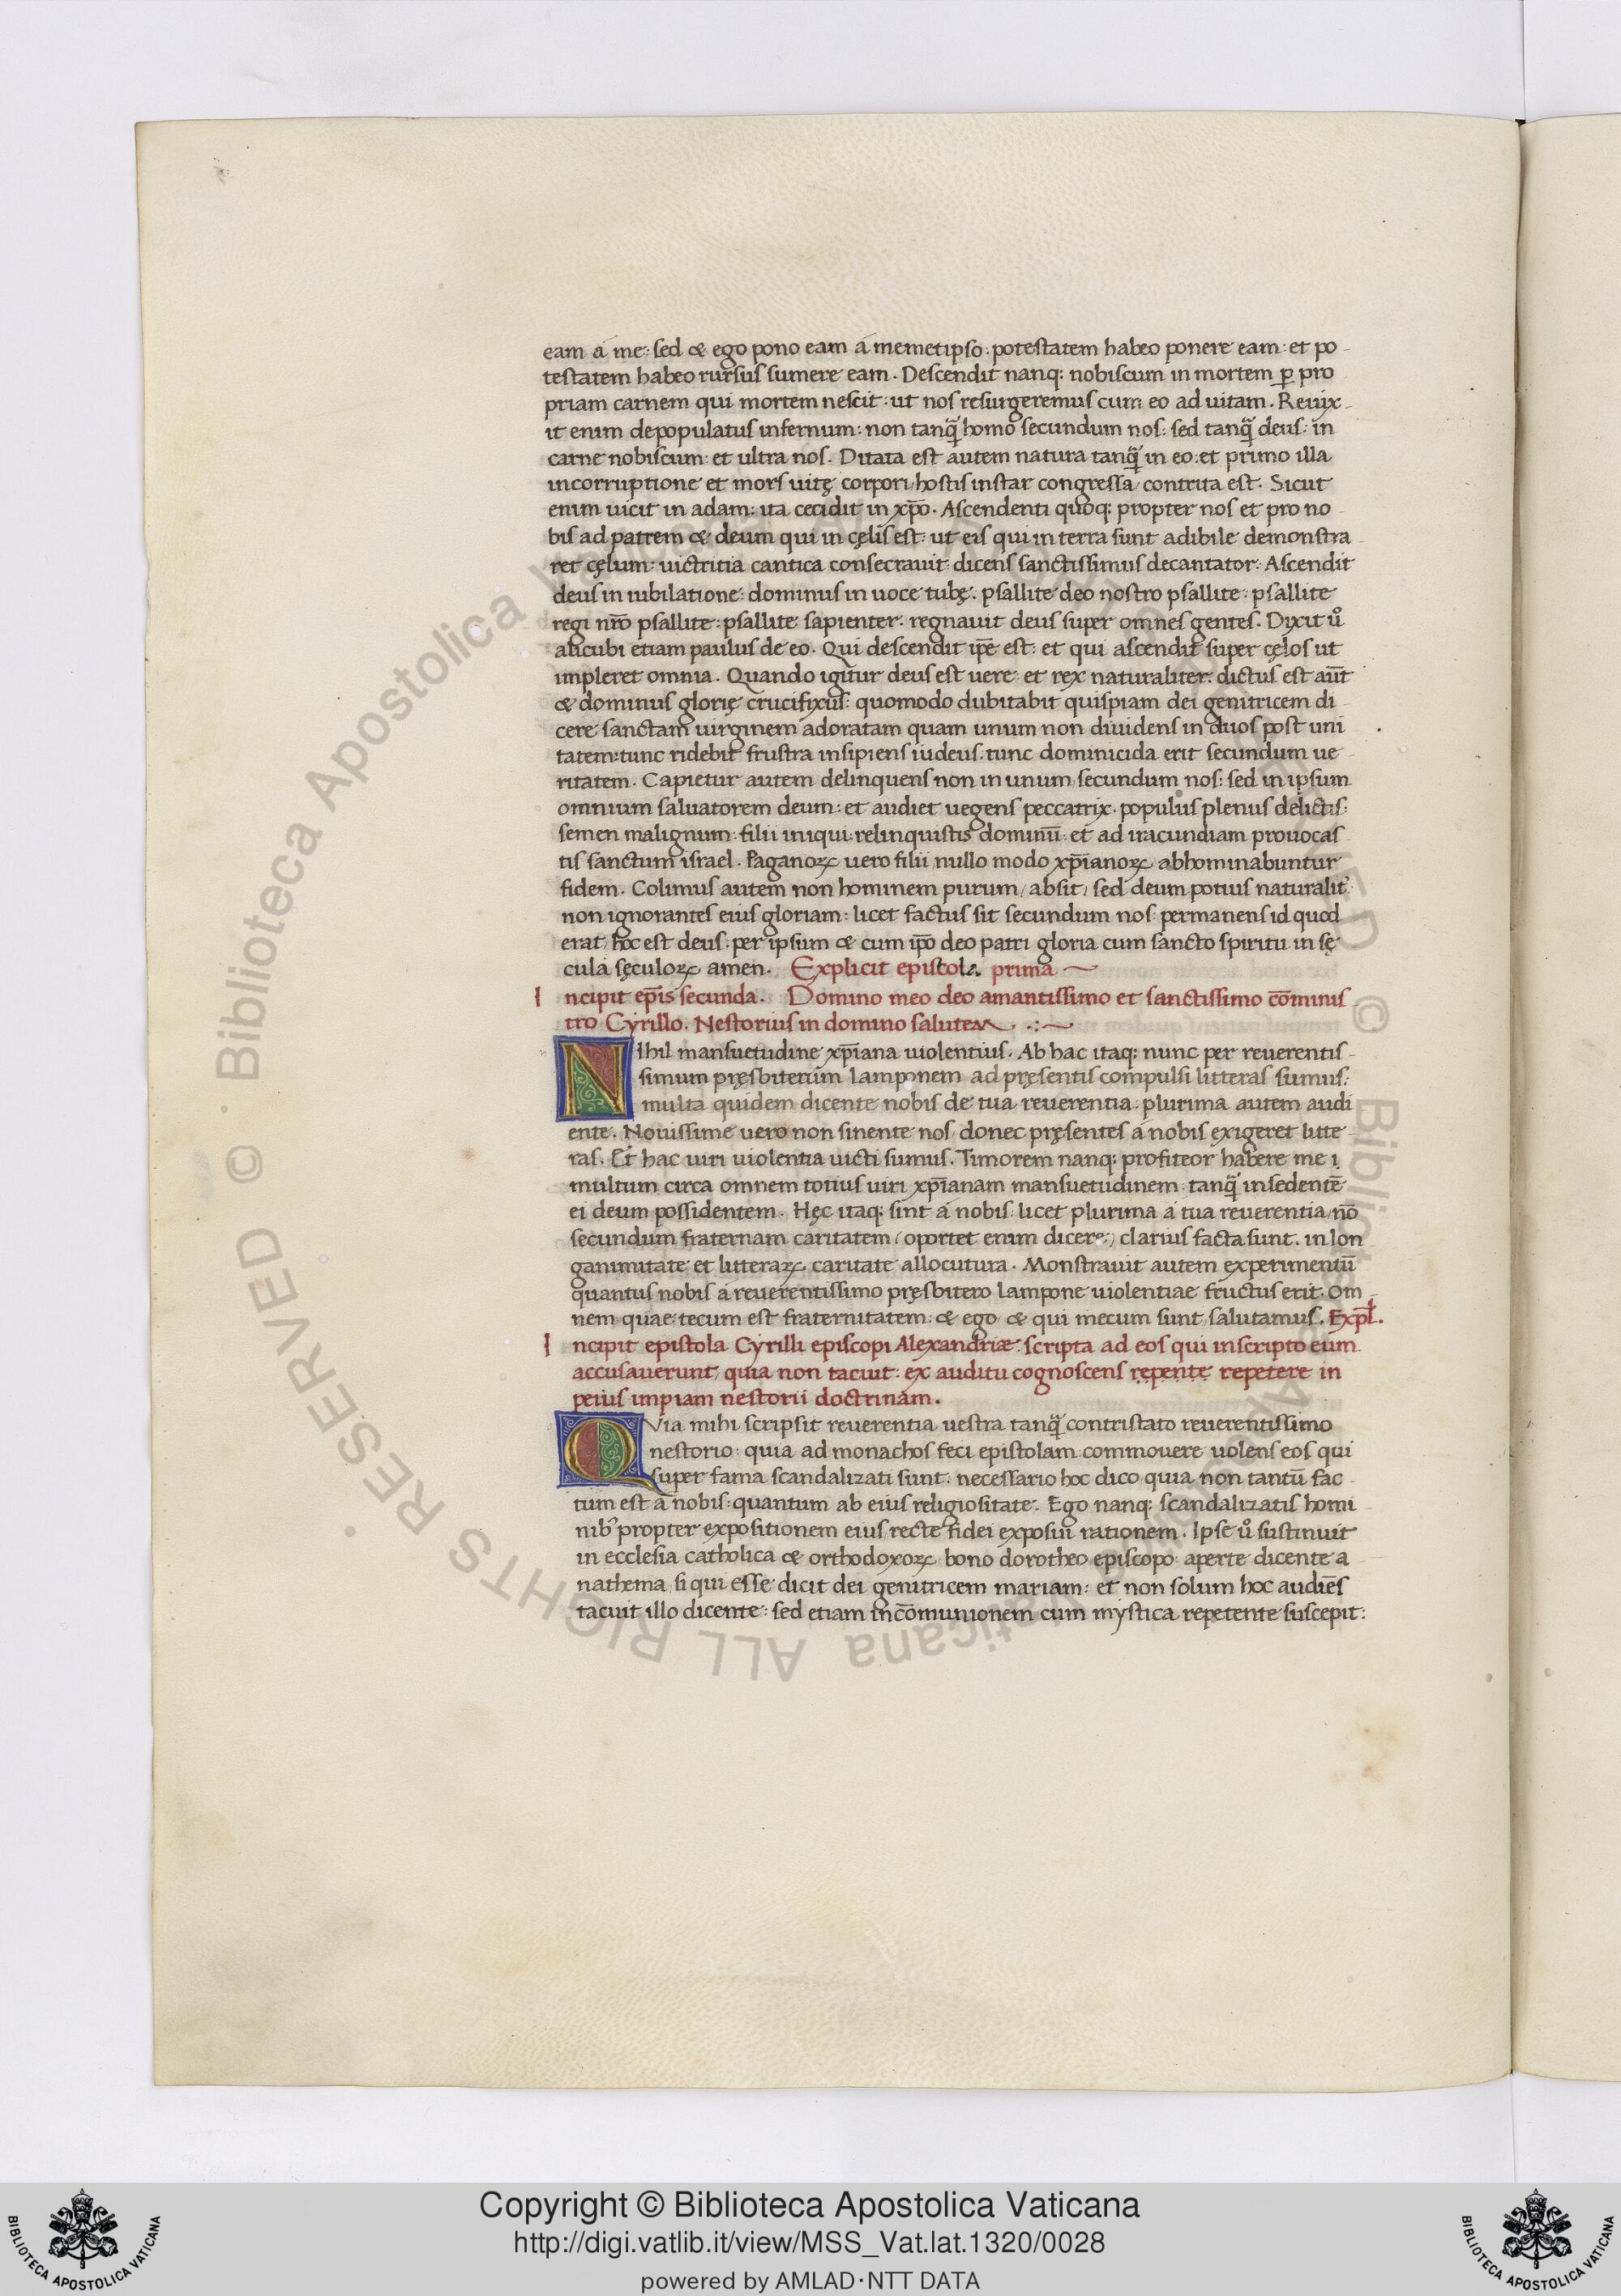 eam á me: sed & ego pono eam á memetipso: potestatem habeo ponere eam: et po-
testatem habeo rursus sumere eam. Descendit nanq; nobiscum in mortem ꝑ pro
priam carnem qui mortem nescit: ut nos resurgeremus cum eo ad uitam. Reuix-
it enim depopulatus infernum: non tanꝗ̃ homo secundum nos: sed tanꝗ̃ deus: in
carne nobiscum: et ultra nos. Ditata est autem natura tanꝗ̃ in eo: et primo illa
incorruptione et mors uitę corpori/ hostis instar congressa/ contrita est. Sicut
enim uicit in adam: ita cecidit in xp̄o. Ascendenti quoq; propter nos et pro no-
bis ad patrem & deum qui in cęlis est: ut eis qui in terra sunt adibile demonstra
ret cęlum: uictritia cantica consecrauit: dicens sanctissimus decantator: Ascendit
deus in iubilatione: dominus in uoce tubę. psallite deo nostro psallite: psallite
regi nr̄o psallite: psallite sapienter. regnauit deus super omnes gentes. Dixit uº
alicubi etiam paulus de eo. Qui descendit ip̄e est: et qui ascendit super cęlos ut
impleret omnia. Quando igitur deus est uere: et rex naturaliter: dictus est aūt
& dominus glorię crucifixus: quomodo dubitabit quispiam dei genitricem di-
cere sanctam uirginem adoratam quam unum non diuidens in duos post uni-
tatem: tunc ridebit frustra insipiens iudeus. tunc dominicida erit secundum ue-
ritatem. Capietur autem delinquens non in unum/ secundum nos: sed in ipsum
omnium saluatorem deum: et audiet uegens peccatrix. populus plenus delictis:
semen malignum: filii iniqui: relinquistis dominū: et ad iracundiam prouocas
tis sanctum israel. Paganoꝝ uero filii nullo modo xp̄ianoꝝ abhominabuntur
fidem. Colimus autem non hominem purum/ absit/ sed deum potius naturalit'.
non ignorantes eius gloriam: licet factus sit secundum nos: permanens id quod
erat/ hoc est deus: per ipsum & cum ip̄o deo patri gloria cum sancto spiritu in sę
cula sęculoꝝ amen. Explicit epistola prima
Incipit ep̄is secunda. Domino meo deo amantissimo et sanctissimo cōminis
tro Cyrillo. Nestorius in domino salutem. .:~
NIhil mansuetudine xp̄iana uiolentius. Ab hac itaq; nunc per reuerentis-
simum pręsbiterum Lamponem ad pręsentis compulsi litteras sumus:
multa quidem dicente nobis de tua reuerentia: plurima autem audi
ente. Nouissime uero non sinente nos/ donec pręsentes á nobis exigeret litte-
ras. Et hac uiri uiolentia uicti sumus. Timorem nanq; profiteor habere me i
multum circa omnem totius uiri xp̄ianam mansuetudinem: tanꝗ̃ insedentē
ei deum possidentem. Hęc itaq; sint á nobis: licet plurima á tua reuerentia/ nō
secundum fraternam caritatem (oportet enim dicere:) clarius facta sunt. in lon
ganimitate et litteraꝝ caritate allocutura. Monstrauit autem experimentū
quantus nobis á reuerentissimo pręsbitero lampone uiolentiae fructus erit. Om-
nem quae tecum est fraternitatem: & ego & qui mecum sunt salutamus. Expl̄.
Incipit epistola Cyrilli episcopi Alexandriæ: scripta ad eos qui inscripto eum
accusauerunt/ quia non tacuit: ex auditu cognoscens repente repetere in
peius impiam nestorii doctrinam.
QVia mihi scripsit reuerentia uestra tanꝗ̃ contristato reuerentissimo
nestorio: quia ad monachos feci epistolam commouere uolens eos qui
super fama scandalizati sunt: necessario hoc dico/ quia non tantū fac-
tum est á nobis: quantum ab eius religiositate. Ego nanq; scandalizatis homi
nib' propter expositionem eius recte fidei exposui rationem. Ipse uº sustinuit
in ecclesia catholica & orthodoxoꝝ bono dorotheo episcopo aperte dicente a
nathema si qui esse dicit dei genitricem mariam: et non solum hoc audiēs
tacuit illo dicente: sed etiam in cōmunionem cum mystica repetente suscepit:
© Biblioteca Apostolica Vaticana ALL RIGHTS RESERVED
Copyright © Biblioteca Apostolica Vaticana
http://digi.vatlib.it/view/MSS_Vat.lat.1320/0028
powered by AMLAD·NTT DATA
BIBLIOTECA APOSTOLICA VATICANA
BIBLIOTECA APOSTOLICA VATICANA